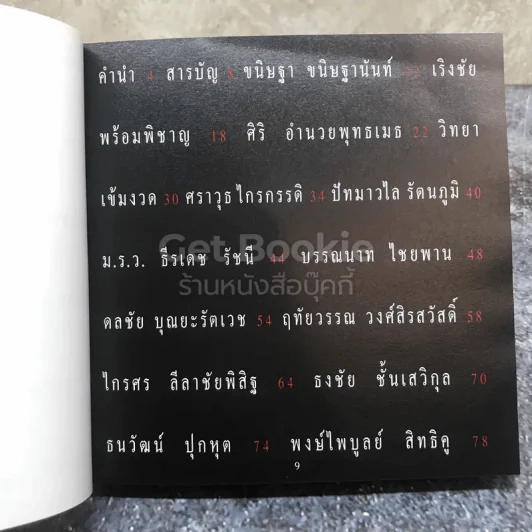 คำนำ 4 สารบัญ 8 ขนิษฐา ขนิษฐานันท์ เริงชัย
พร้อมพิชาญ 18 ศิริ อำนวยพุทธเมธ 22 วิทยา
เข้มงวด 30 ศราวุธ ไกรกรรดิ 34 ปัทมาวไล รัตนภูมิ 40
ม.ร.ว. ธีรเดช รัชนี 44 บรรณนาท ไชยพาน 48
Get Bookie
ร้านหนังสือบุ๊คกี้
ดลชัย บุณยะรัตเวช 54 ฤทัยวรรณ วงศ์สิรสวัสดิ์ 58
ไกรศร ลีลาชัยพิสิฐ 64 ธงชัย ชั้นเสวิกุล 70
ธนวัฒน์ ปุกหุต 74 พงษ์ไพบูลย์ สิทธิคู 78
9